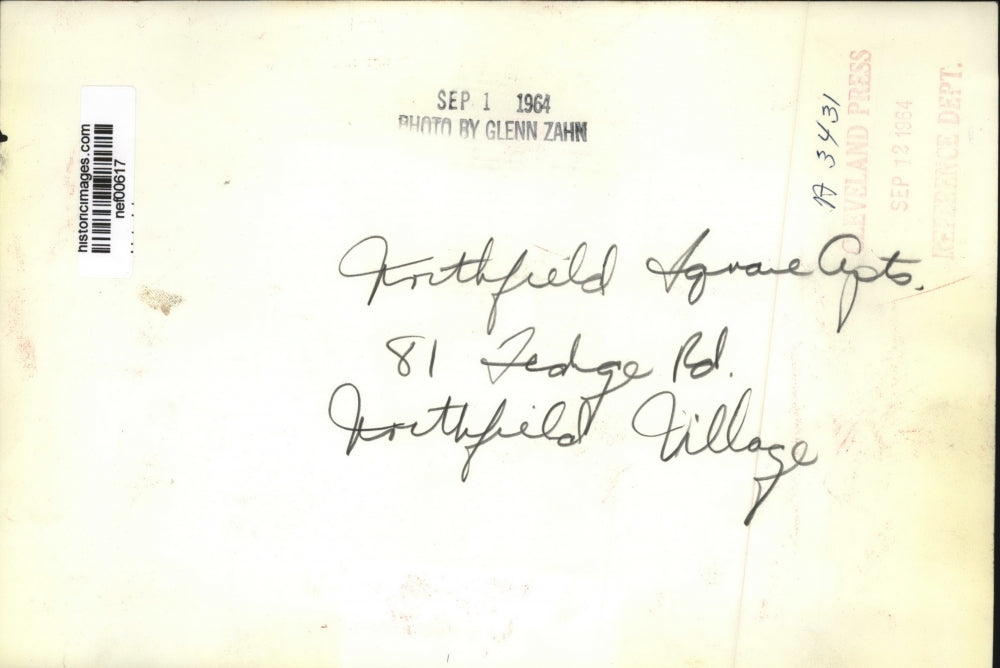 SEP 1 1964
PHOTO BY GLENN ZAHN
historicimages.com
nef00617
A 3431
CLEVELAND PRESS
SEP 12 1964
REFERENCE DEPT.
Northfield Square Apts.
81 Ledge Rd.
Northfield Village